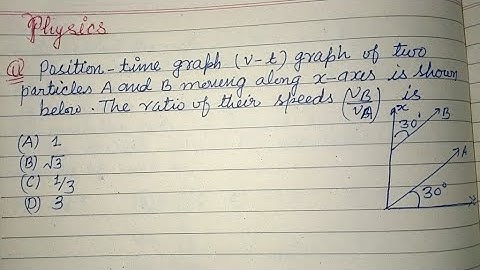 Physics
Q Position-time graph (v-t) graph of two
particles A and B moving along x-axes is shown
below. The ratio of their speeds (vB/vB) is
x
30°
B
(A) 1
(B) √3
A
(C) 1/3
30°
(D) 3